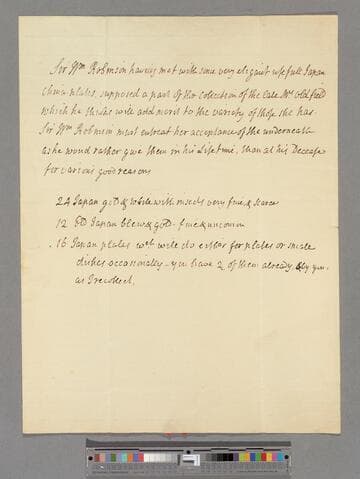 Sir Wm Robinson having met with some very elegant usefull Japan
china plates, supposed a part of the Colection of the late Mr Oldfield
which he thinks will add merit to the variety of those she has.
Sir Wm Robinson must entreat her acceptance of the underneath
as he woud rather give them in his Lifetime, than at his Decease
for various good reasons
24 Japan gold & white with insects very fine & scarce
12 Do Japan blew & gold - fine & uncomn
16 Japan plates wch will do either for plates or smale
dishes occasionaly - you have 2 of them already by you
as I recollect.